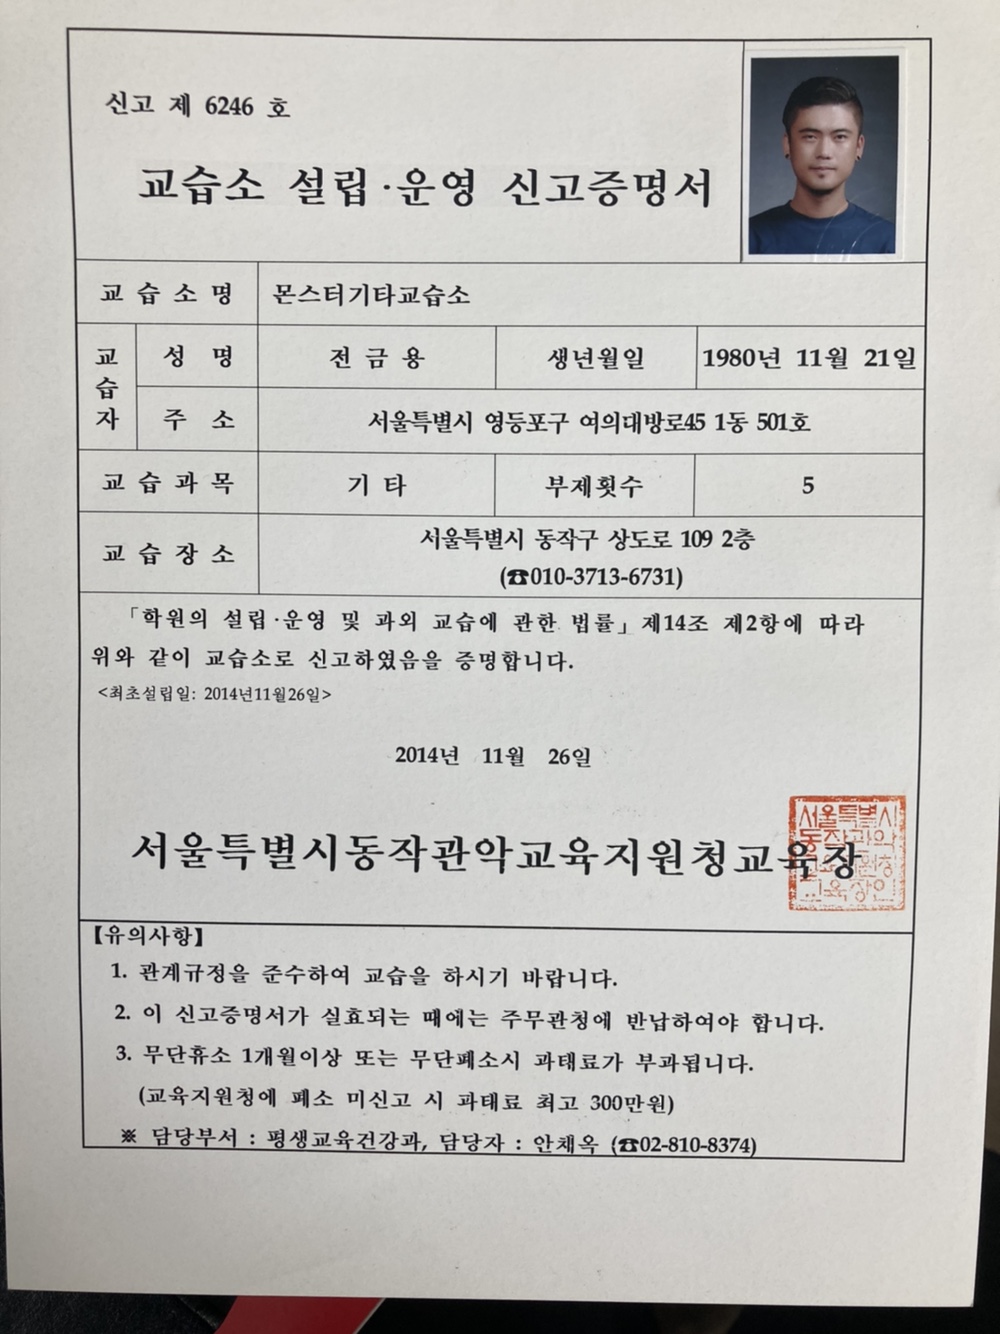 신고 제 6246 호
교습소 설립·운영 신고증명서
교 습 소 명 몬스터기타교습소
교습자 성 명 전 금 용 생년월일 1980년 11월 21일
주 소 서울특별시 영등포구 여의대방로45 1동 501호
교 습 과 목 기 타 부제횟수 5
교 습 장 소 서울특별시 동작구 상도로 109 2층
(☎010-3713-6731)
「학원의 설립·운영 및 과외 교습에 관한 법률」제14조 제2항에 따라
위와 같이 교습소로 신고하였음을 증명합니다.
<최초설립일: 2014년11월26일>
2014년 11월 26일
서울특별시동작관악교육지원청교육장
서울특별시
동작관악
교육지원청
교육장인
【유의사항】
1. 관계규정을 준수하여 교습을 하시기 바랍니다.
2. 이 신고증명서가 실효되는 때에는 주무관청에 반납하여야 합니다.
3. 무단휴소 1개월이상 또는 무단폐소시 과태료가 부과됩니다.
(교육지원청에 폐소 미신고 시 과태료 최고 300만원)
※ 담당부서 : 평생교육건강과, 담당자 : 안채옥 (☎02-810-8374)